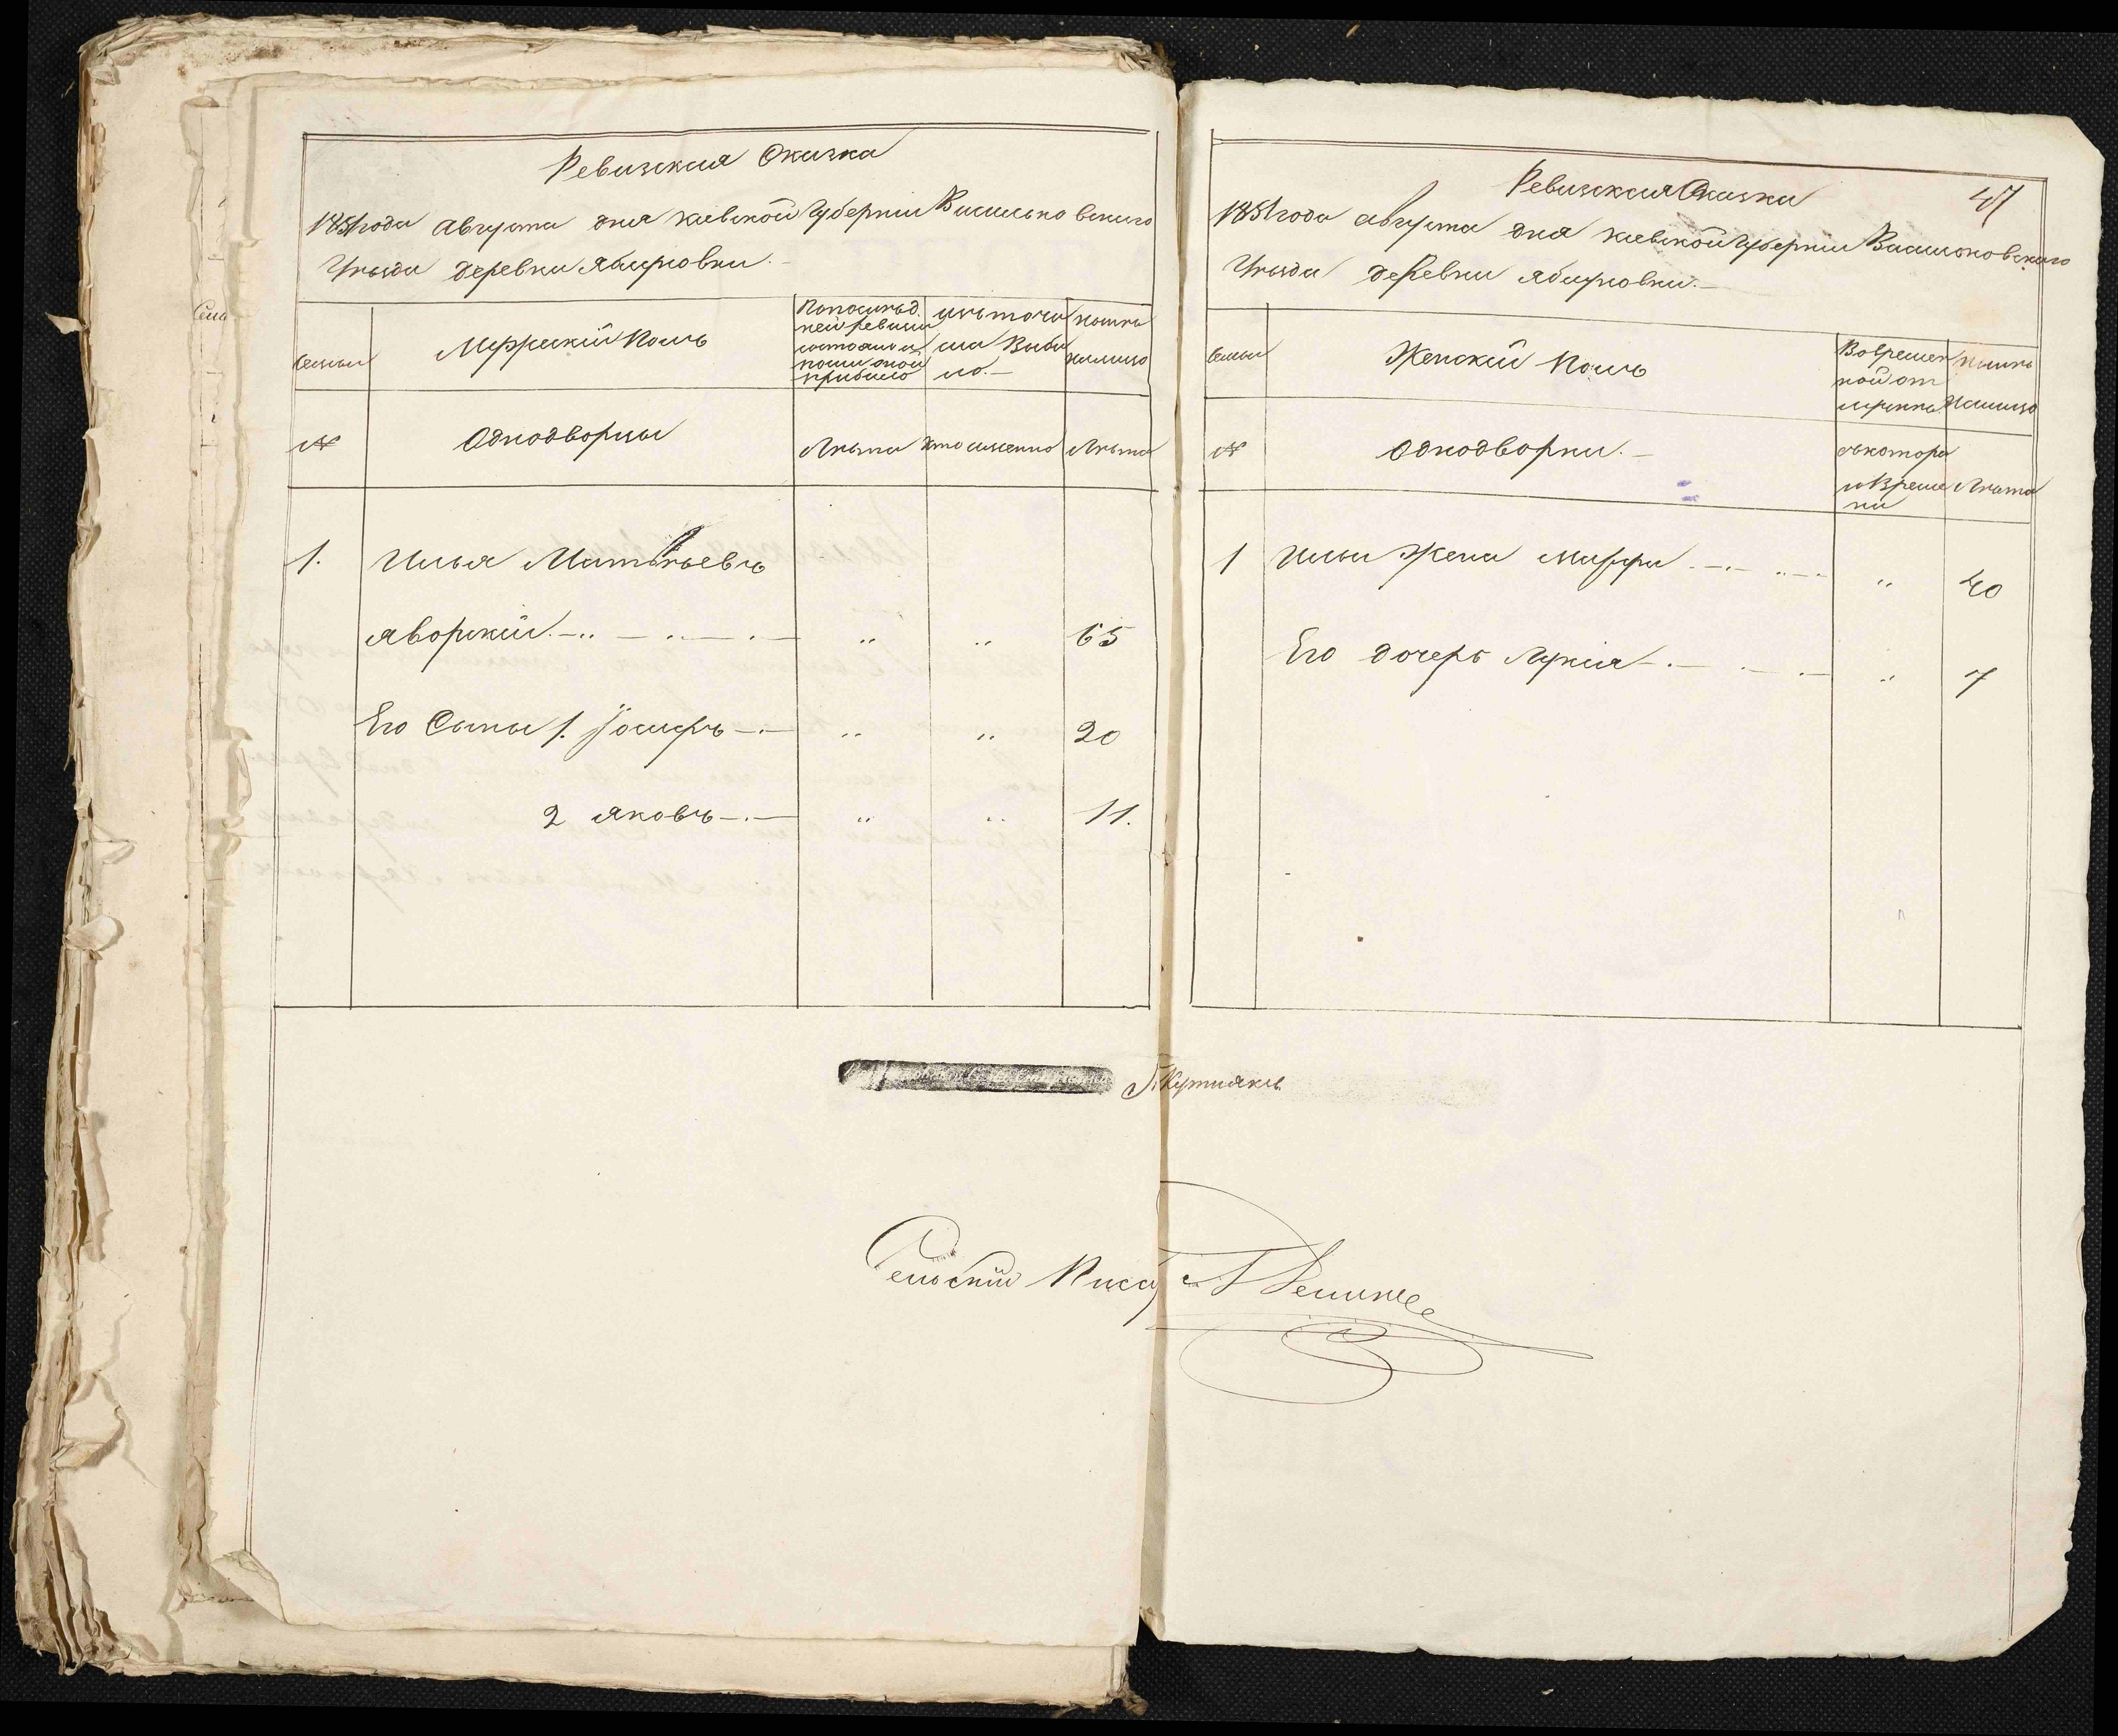 Ревизская Сказка
1851 года августа дня киевской Губернии Васильковскаго
Уезда деревни Яблуновки.
Семьи
Мужский Полъ
Попослѣд
ней ревизии
состояло и
после оной
прибыло
изъ того чи
сла Выбы
ло.
Нынѣ
налицо
№
Однодворцы
Лѣта
Кто именно
Лѣта
1. Илья Матвѣевъ
Яворский 65
Его Сыны 1. Іосифъ 20
2 Яковъ 11.
47
Ревизская Сказка
1851 года августа дня киевской Губернии Васильковскаго
Уезда деревни Яблуновки.
Семьи
Женский Полъ
Вовремен
ной от
лучкѣ
Нынѣ
Налицо
№
Однодворки.
съкотора
го Време
ни
Лѣта
1 Ильи Жена Марфа 40
Его дочерь Лукія 7
Сельский Писарь